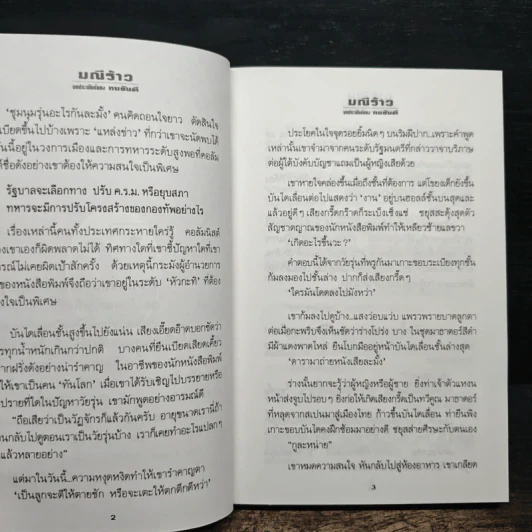 มณีร้าว
บทประพันธ์ของ ทมยันตี
'ชุมนุมรุ่นอะไรกันละมั้ง' คนคิดถอนใจยาว ตัดสินใจ
เบียดขึ้นไปบ้างเพราะ 'แหล่งข่าว' ที่กว่าเขาจะนัดพบได้
นี้อยู่ในวงการเมืองและการทหารระดับสูงพอที่คอลัม
ดีชื่อดังอย่างเขาต้องให้ความสนใจเป็นพิเศษ
รัฐบาลจะเลือกทาง ปรับ ค.ร.ม. หรือยุบสภา
ทหารจะมีการปรับโครงสร้างของกองทัพอย่างไร
เรื่องเหล่านี้คนทั้งประเทศกระหายใคร่รู้ คอลัมนิสต์
งเขาเองก็ผิดพลาดไม่ได้ ทิศทางใดที่เขาชี้ปัญหาใดที่เขา
รณ์ไม่เคยผิดเป้าสักครั้ง ด้วยเหตุนี้กระมังผู้อำนวยการ
ของหนังสือพิมพ์จึงถือว่าเขาอยู่ในระดับ 'หัวกะทิ' ที่ต้อง
ใจเป็นพิเศษ
บันไดเลื่อนชั้นสูงขึ้นไปยังแน่น เสียงเอี๊ยดอ๊าดบอกชัดว่า
รทุกน้ำหนักเกินกว่าปกติ บางคนที่ยืนเบียดเสียดเคี้ยว
ากฝรั่งดังอย่างน่ารำคาญ ในอาชีพของนักหนังสือพิมพ์
ให้เขาเป็นคน 'ทันโลก' เมื่อเขาได้รับเชิญไปบรรยายหรือ
ปรายที่ใดในปัญหาวัยรุ่น เขามักพูดอย่างอารมณ์ดี
"ถือเสียว่าเป็นวัฏจักรก็แล้วกันครับ อายุขนาดเรานี่ถ้า
หันกลับไปดูตอนเราเป็นวัยรุ่นบ้าง เราก็เคยทำอะไรแปลกๆ
แล้วหลายอย่าง"
แต่มาในวันนี้...ความหงุดหงิดทำให้เขารำคาญตา
'เป็นลูกจะตีให้ตายชัก หรือจะเตะให้ตกตึกดีหว่า'
2
มณีร้าว
บทประพันธ์ของ ทมยันตี
ประโยคในใจจุดรอยยิ้มนิดๆ บนริมฝีปาก...เพราะคำพูด
เหล่านั้นเขาจำมาจากคนระดับรัฐมนตรีที่กล่าววาจาบริภาษ
ต่อผู้ใต้บังคับบัญชาแถมเป็นผู้หญิงเสียด้วย
เขาหายใจคล่องขึ้นเมื่อถึงชั้นที่ต้องการ แต่โขยงเด็กยังขึ้น
บันไดเลื่อนต่อไปแสดงว่า 'งาน' อยู่บนฮอลล์ชั้นบนสุดและ
แล้วอยู่ดีๆ เสียงกรี๊ดกร๊าดก็ระเบ็งเซ็งแซ่ ชยุสสะดุ้งสุดตัว
สัญชาตญาณของนักหนังสือพิมพ์ทำให้เหลียวซ้ายแลขวา
"เกิดอะไรขึ้นวะ ?"
คำตอบนี้ได้จากวัยรุ่นที่พรูกันมาเกาะขอบระเบียงทุกชั้น
ก้มลงมองไปชั้นล่าง ปากก็ส่งเสียงกรี๊ดๆ
'ใครมันโดดลงไปมังหว่า'
เขาก้มลงไปดูบ้าง...แสงวอบแวบ แพรวพรายบาดลูกตา
ต่อเมื่อกะพริบจึงเห็นชัดว่าร่างโปร่ง บาง ในชุดมาธาดอร์สีดำ
มีผ้าแดงพาดไหล่ ยืนโบกมืออยู่หน้าบันไดเลื่อนชั้นล่างสุด
'ดารามาถ่ายหนังเสียละมั้ง'
ร่างนั้นยากจะรู้ว่าผู้หญิงหรือผู้ชาย ยิ่งท่าเจ้าตัวแหงน
หน้าส่งจูบไปรอบๆ ยิ่งก่อให้เกิดเสียงกรี๊ดเป็นทวีคูณ มาธาดอร์
ที่หลุดจากสเปนมาสู่เมืองไทย ก้าวขึ้นบันไดเลื่อน ท่ายืนพิง
เกาะขอบบันไดคงฝึกซ้อมมาอย่างดี ชยุสส่ายศีรษะกับตนเอง
"กูละหน่าย"
เขาหมดความสนใจ หันกลับไปสู่ห้องอาหาร เขาเกลียด
3